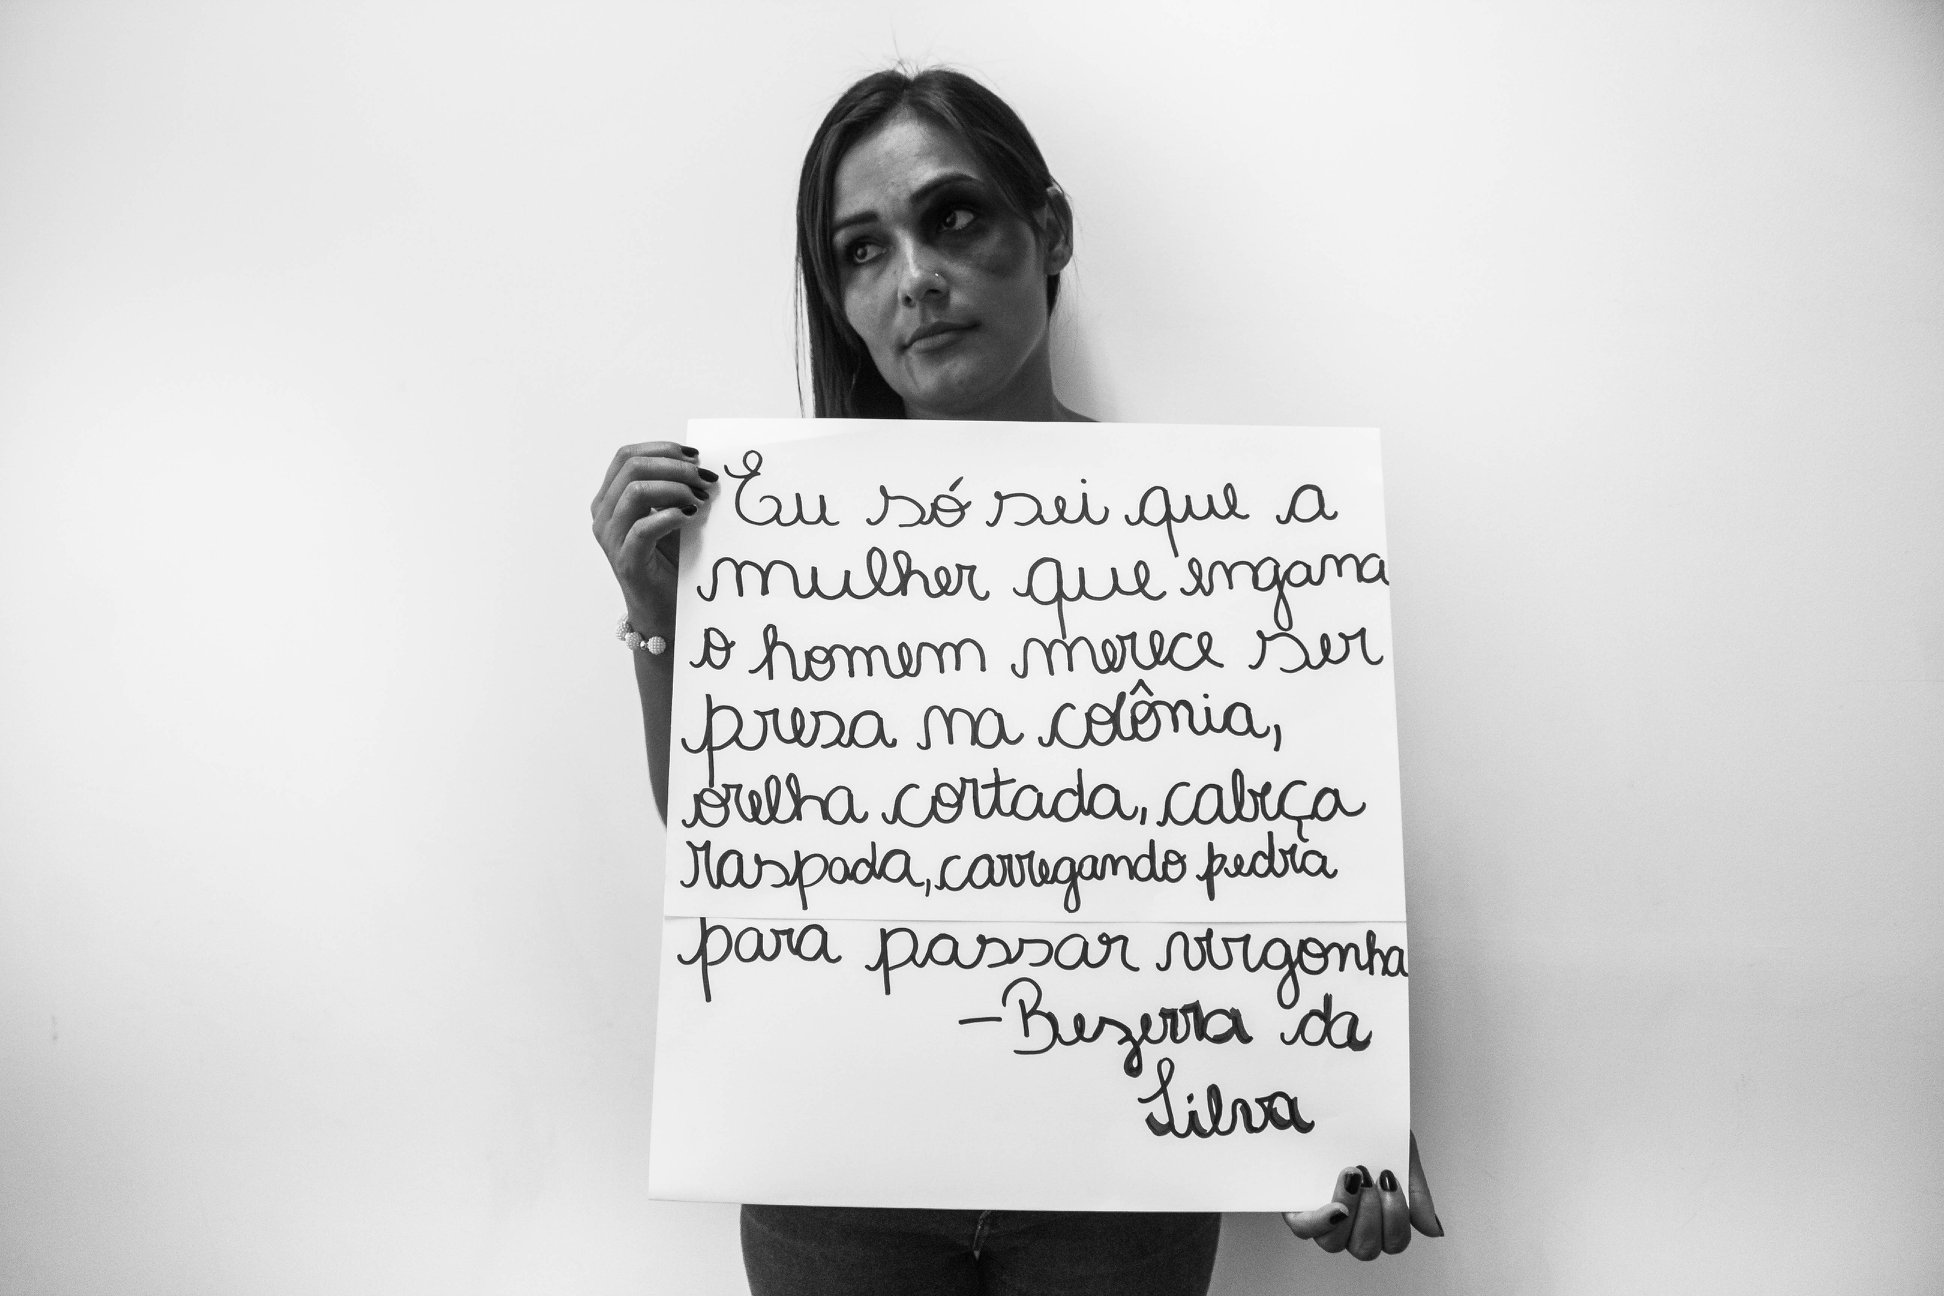 Eu só sei que a
mulher que engana
o homem merece ser
presa na colônia,
orelha cortada, cabeça
raspada, carregando pedra
para passar vergonha
- Bezerra da
Silva